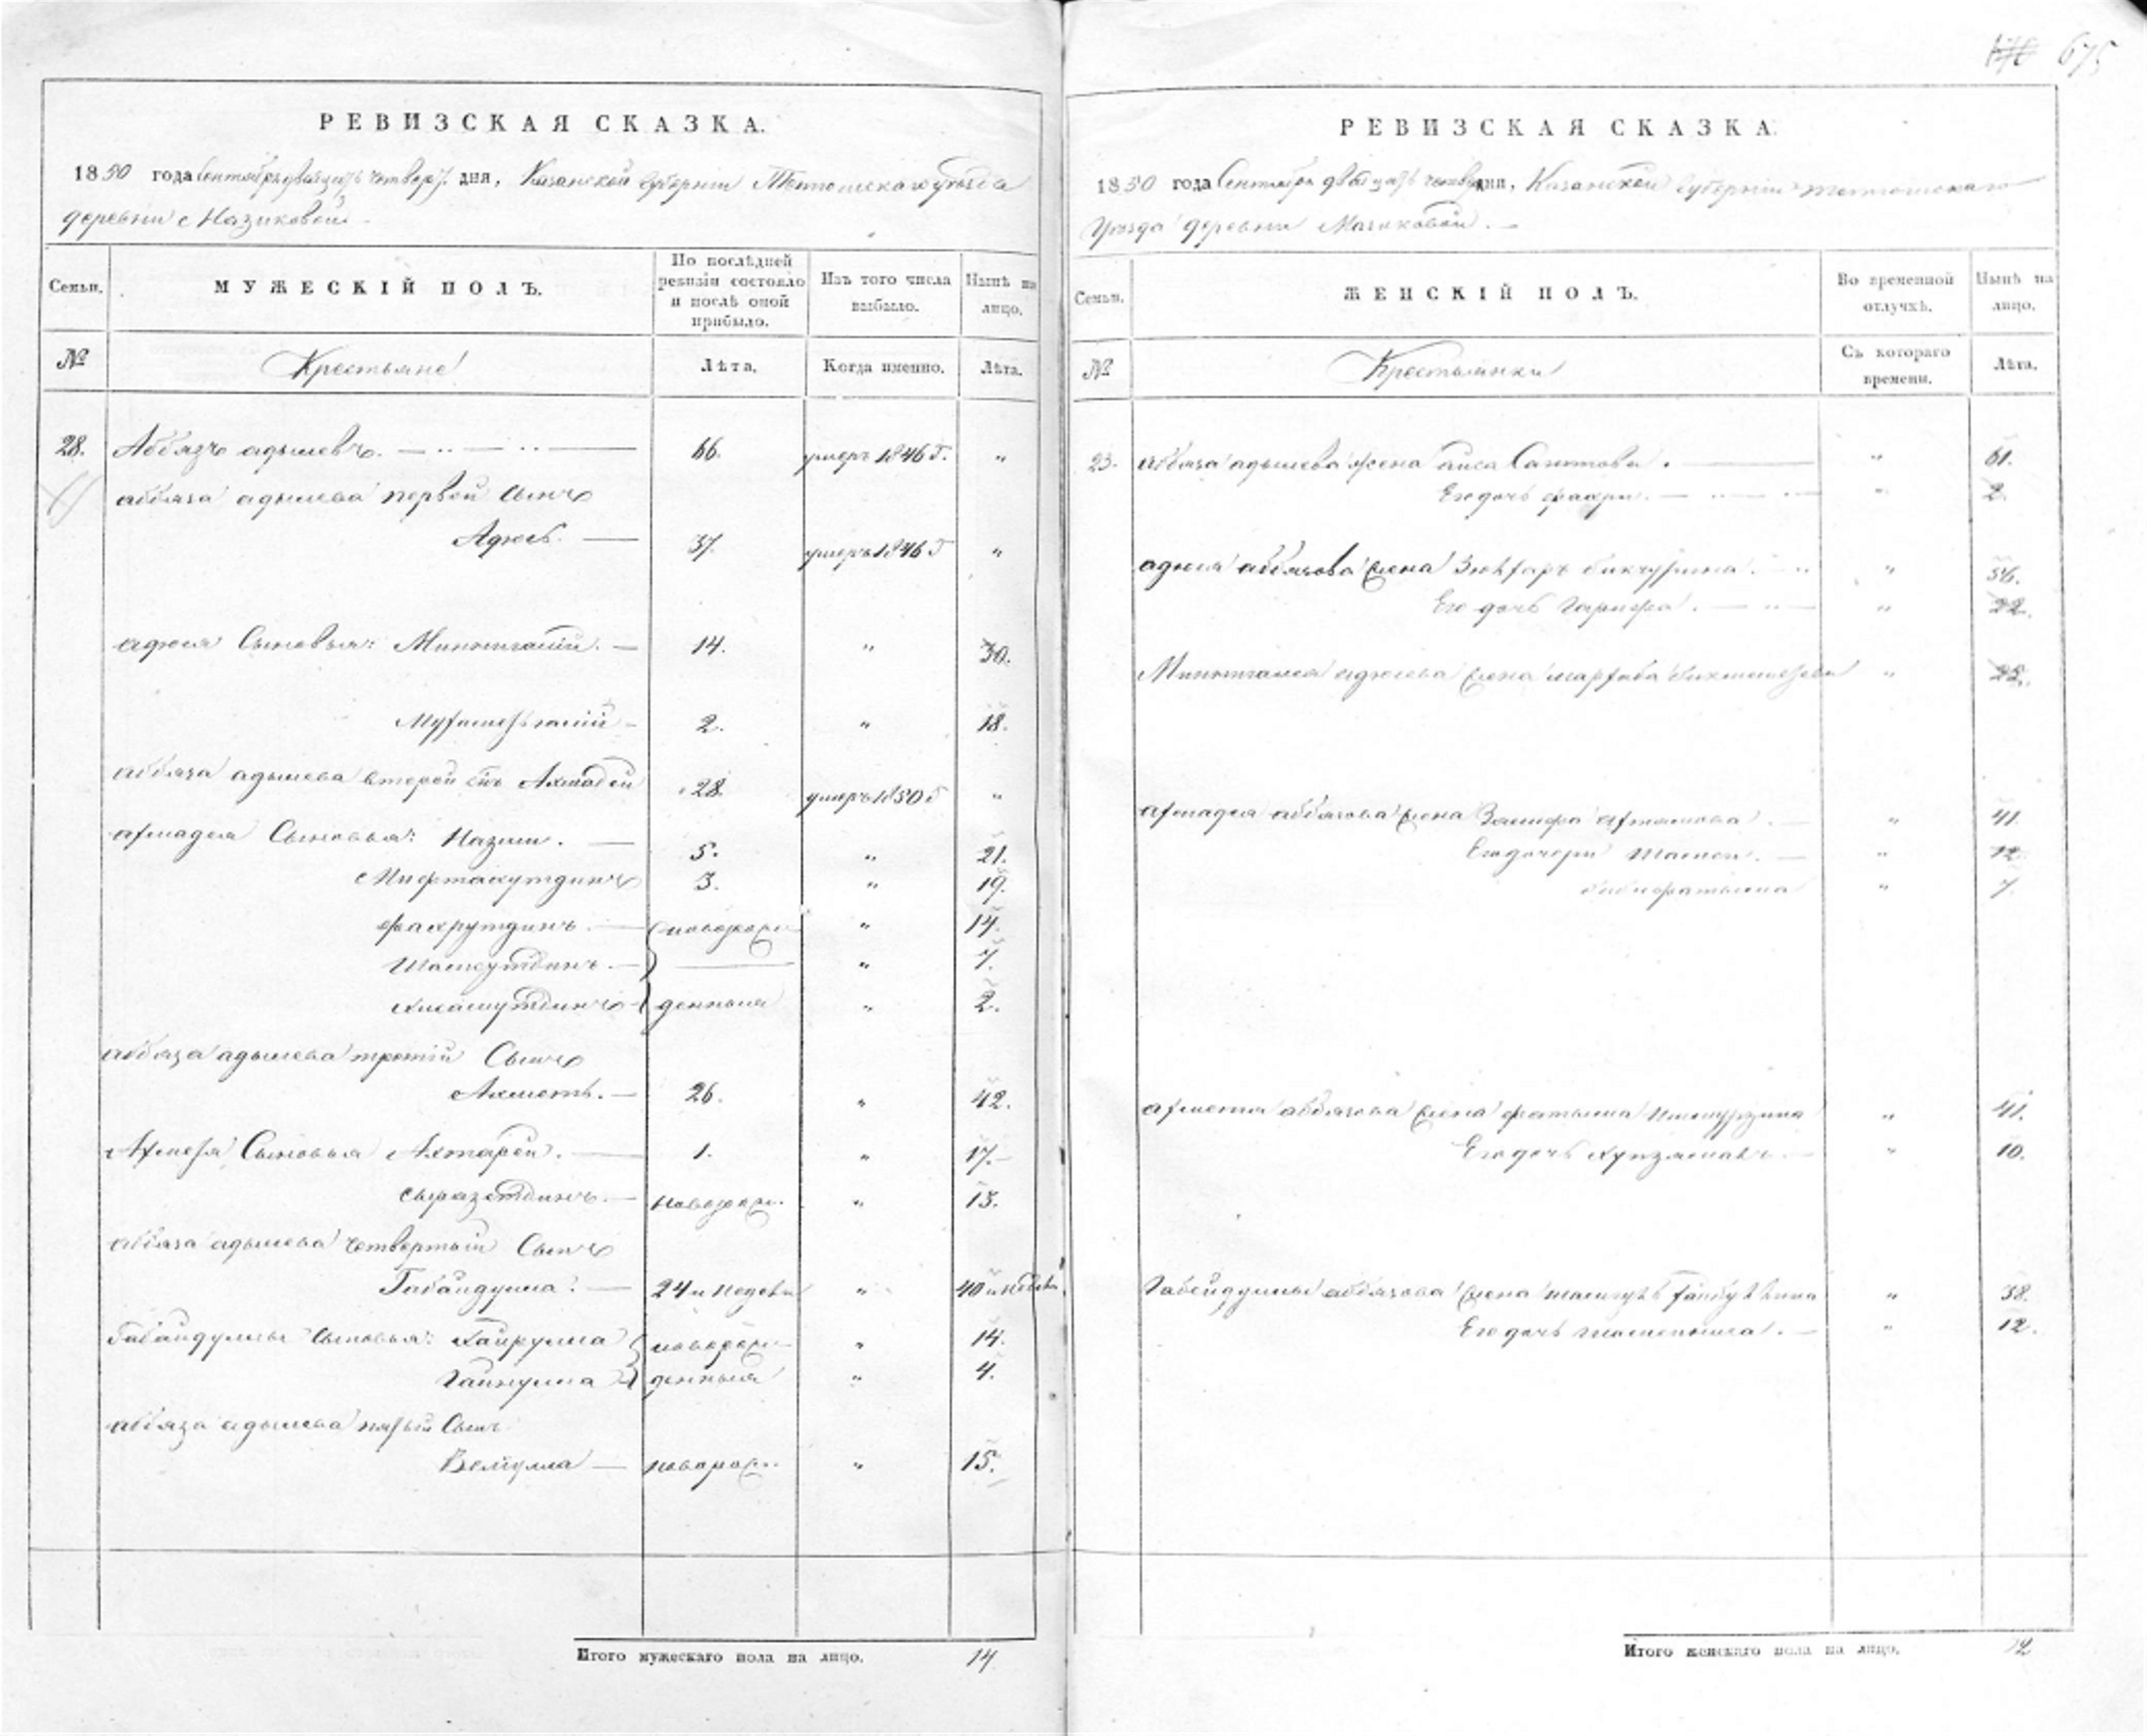 170 675
РЕВИЗСКАЯ СКАЗКА.
1850 года Сентября двадцать четверт. дня, Казанской Губерніи Тетюшскаго уѣзда
деревни Мазиковой
Семьи.
МУЖЕСКІЙ ПОЛЪ.
По послѣдней ревизіи состояло и послѣ оной прибыло.
Изъ того числа выбыло.
Нынѣ на лицо.
№
Крестьяне
Лѣта.
Когда именно.
Лѣта.
28. Аббязъ адышевъ. 66. умеръ 1846 г. "
аббяза адышева первой сынъ
Адюсь. 37. умеръ 1846 г "
адюся Сыновья: 14. " 30.
2. " 18.
аббяза адышева второй снъ Ахмадей 28. умеръ 1850 г "
ахмадея Сыновья: Назми. 5. " 21.
Мифтахутдинъ 3. " 19.
фахрутдинъ. новорож- " 14.
Шамсутдинъ. " 7.
денныя " 2.
аббяза адышева третій Сынъ
Ахметь. 26. " 42.
Ахметя Сыновья Ахтарей. 1. " 17.
Сыразетдинъ. новорож. " 13.
аббяза адышева четвертый Сынъ
Габайдулла. 24 и недели " 40 и недели
Габайдуллы Сыновья: Хайрулла новорож- " 14.
Гайнулла денныя " 4.
аббяза адышева пятый Сынъ
Велиулла новорож. " 15.
Итого мужескаго пола на лицо. 14
РЕВИЗСКАЯ СКАЗКА.
1850 года Сентября двадцать четвер дня, Казанской Губерніи Тетюшскаго
Уѣзда деревни Мазиковой.
Семьи.
ЖЕНСКІЙ ПОЛЪ.
Во временной отлучкѣ.
Нынѣ на лицо.
№
Крестьянки
Съ котораго времени.
Лѣта.
23. аббяза адышева жена Сагитова. " 61.
Его дочь фахри. " 2.
адюся аббязова жена бикчурина. " 56.
Его дочь Гарифа. " 22.
адюсева жена " 25.
ахмадея аббязова жена Зашфа " 41.
Его дочери " 12.
бибифатыма " 7.
ахметя аббязова жена фатыма " 41.
Его дочь " 10.
Габейдуллы аббязова жена " 38.
Его дочь " 12.
Итого женскаго пола на лицо. 12